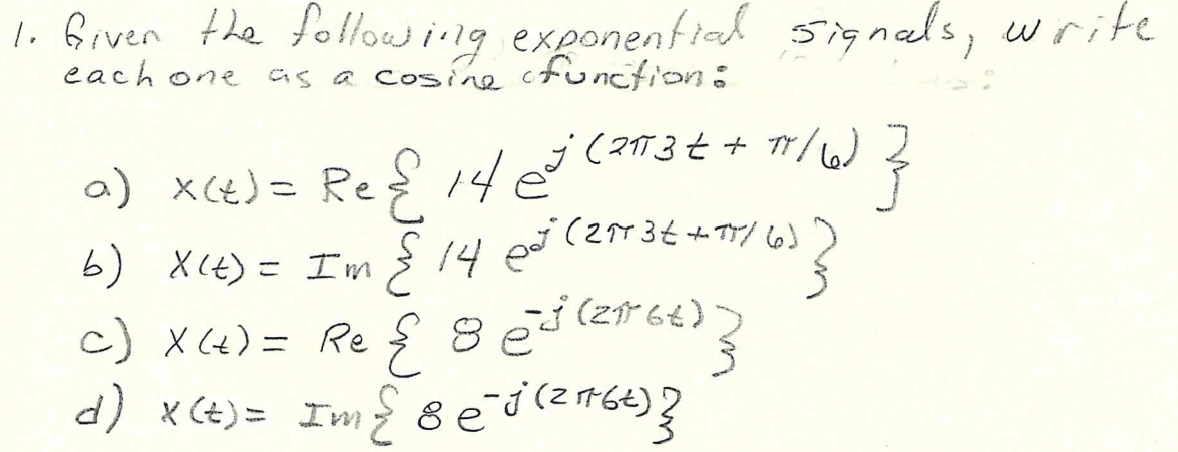 1. Given the following exponential signals, write
each one as a cosine function:
a) x(t) = Re{ 14 e^j(2π3t + π/6) }
b) X(t) = Im { 14 e^j(2π3t + π/6) }
c) X(t) = Re { 8 e^-j(2π6t) }
d) x(t) = Im{ 8 e^-j(2π6t) }